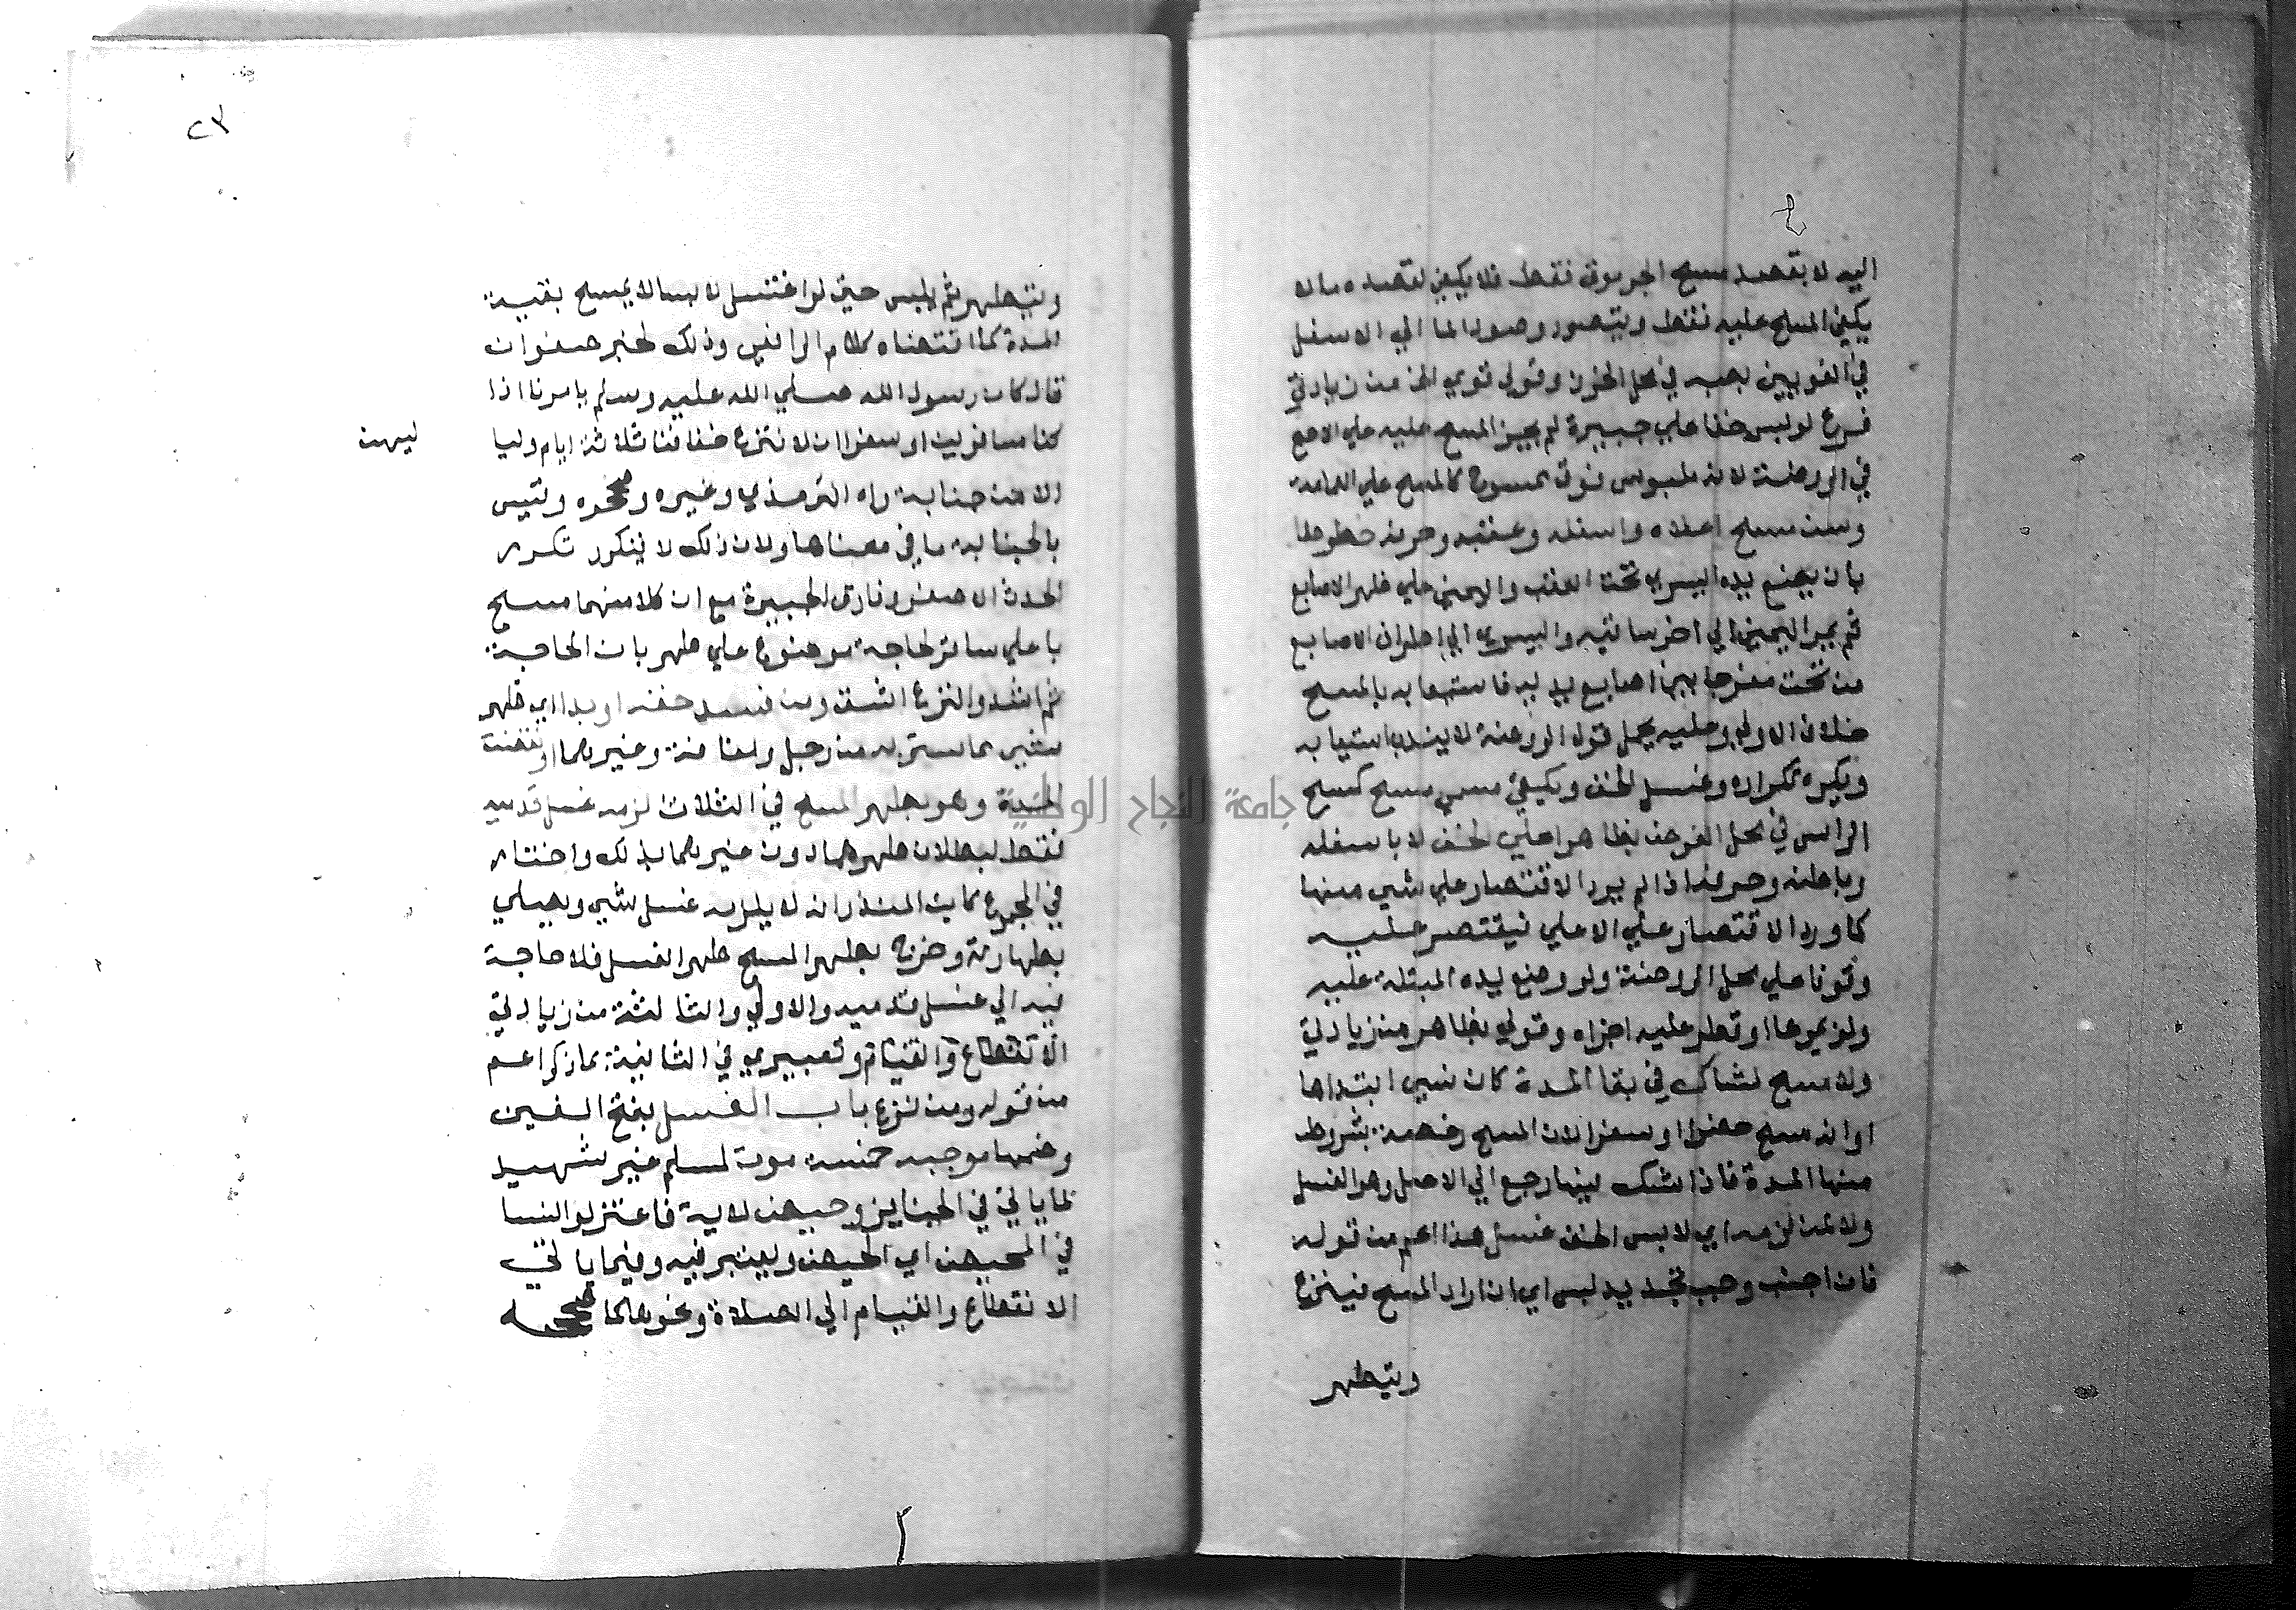 اليه لا بقصد مسح الجرموق فقط فلا يكفي لقصده ما لا
يكفي المسح عليه فقط ويتصور وصول الما الي الاسفل
في القويين بصبه في محل الخرز وقولي قوي الخ من زيادتي
فرع لو لبس خفا علي جبيرة لم يجز المسح عليه علي الاصح
في الروضة لانه ملبوس فوق ممسوح كالمسح علي العمامة
وسن مسح اعلاه واسفله وعقبه وحرفه خطوطا
بان يضع يده اليسري تحت العقب واليمني علي ظهر الاصابع
ثم يمر اليمني الي اخر ساقيه واليسري الي اطراف الاصابع
من تحت مفرجا بين اصابع يديه فاستيعابه بالمسح
خلاف الاولي وعليه يحمل قول الروضة لا يندب استيعابه
ويكره تكراره وغسل الخف ويكفي مسمي مسح كمسح
الراس في محل الفرض بظاهر اعلي الخف لا باسفله
وباطنه وحرفه اذ لم يرد الاقتصار علي شي منها
كما ورد الاقتصار علي الاعلي فيقتصر عليه
وقوفا علي محل الروضة ولو وضع يده المبتلة عليه
ولم يمرها او قطر عليه اجزاه وقولي بظاهر من زيادتي
ولا مسح لشاك في بقا المدة كان نسي ابتداها
او انه مسح حضرا او سفرا لان المسح رخصة بشروط
منها المدة فاذا شك فيها رجع الي الاصل وهو الغسل
ولا لمن لزمه اي لابس الخف غسل هذا اعم من قوله
فان اجنب وجب تجديد لبس اي ان اراد المسح فينزع
ويتطهر
٢٣
ويتطهر ثم يلبس حتي لو اغتسل لابسا لا يمسح بقية
المدة كما اقتضاه كلام الرافعي وذلك لخبر صفوان
قال كان رسول الله صلي الله عليه وسلم يامرنا اذا
كنا مسافرين او سفرا ان لا ننزع خفافنا ثلاثة ايام وليا
ليهن
الا من جنابة رواه الترمذي وغيره وصححوه وقيس
بالجنابة ما في معناها ولان ذلك لا يتكرر تكرر
الحدث الاصغر وفارق الجبيرة مع ان كلا منهما مسح
باعلي ساتر لحاجة موضوع علي طهر بان الحاجة
ثم اشد والنزع اشق ومن فسد خفه او بدا اي ظهر
شي مما ستر به من رجل ولفافة وغيرهما او انقضت
المدة وهو بطهر المسح في الثلاث لزمه غسل قدميه
فقط لبطلان طهرهما دون غيرهما بذلك واختار
في المجموع كابن المنذر انه لا يلزمه غسل شي ويصلي
بطهارته وخرج بطهر المسح طهر الغسل فلا حاجة
فيه الي غسل قدميه والاولي والثالثة من زيادتي
الانقطاع والقيام وتعبيري في الثانية بما ذكر اعم
من قوله ومن نزع باب الغسل بفتح الغين
وضمها موجبه خمسة موت لمسلم غير شهيد
لما ياتي في الجنايز وحيض لاية فاعتزلوا النسا
في المحيض اي الحيض ويعتبر فيه وفيما ياتي
الانقطاع والقيام الي الصلاة ونحوها كما صححه
جامعة النجاح الوطنية